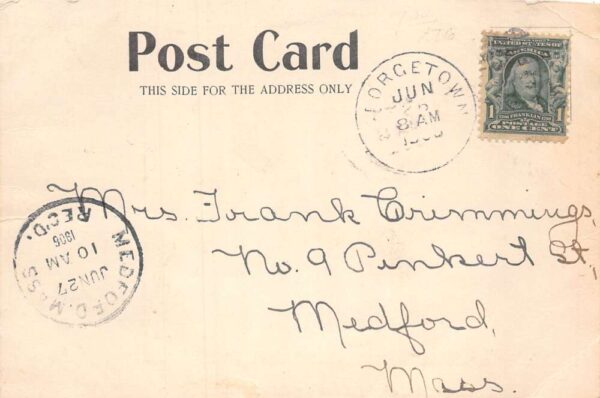 Post Card
THIS SIDE FOR THE ADDRESS ONLY
GEORGETOWN
JUN
26
8 AM
1906
UNITED STATES OF
AMERICA
1 1
FRANKLIN
POSTAGE
ONE CENT
Mrs. Frank Crimmings,
No. 9 Pinkert St,
Medford,
Mass.
MEDFORD, MASS
JUN 27
10 AM
1906
REC'D.